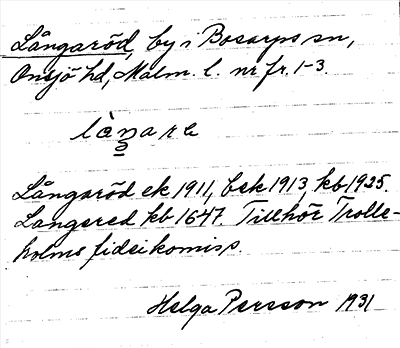 Långaröd, by i Bosarps sn,
Onsjö hd, Malm. l. nr fr. 1-3.
làŋarə
Långaröd ek 1911, bsk 1913, kb 1925.
Langered kb 1647. Tillhör Trolle-
holms fideikomiss.
Helga Persson 1931